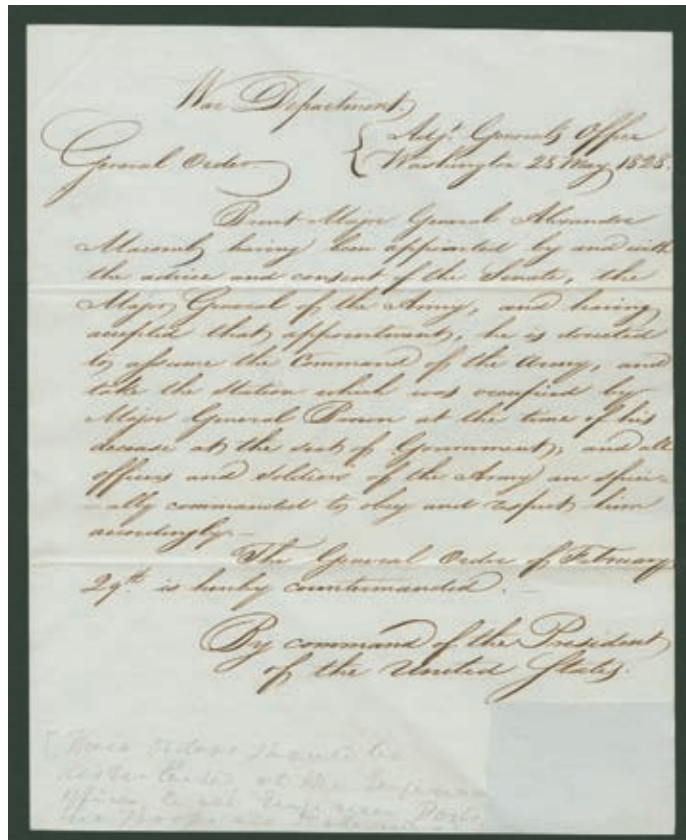 War Department,
Adjt. Generals Office
General Order Washington 28 May 1828.
Brevet Major General Alexander
Macomb having been appointed by and with
the advice and consent of the Senate, the
Major General of the Army, and having
accepted that appointment, he is directed
to assume the Command of the Army, and
take the station which was occupied by
Major General Brown at the time of his
decease at the seat of Government, and all
officers and soldiers of the Army are speci-
-ally commanded to obey and respect him
accordingly.—
The General Order of February
29th. is hereby countermanded.—
By command of the President
of the United States.
orders
at the
Office, to all Posts